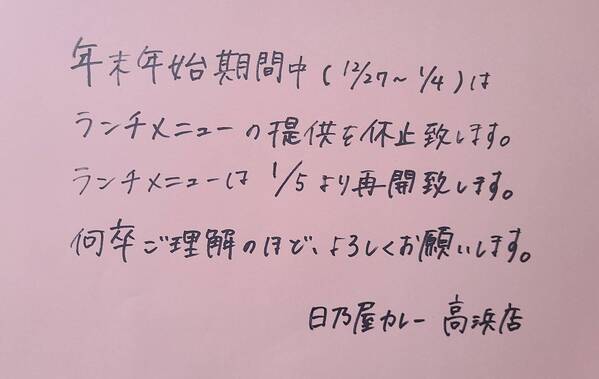 年末年始期間中(12/27～1/4)は
ランチメニューの提供を休止致します。
ランチメニューは1/5より再開致します。
何卒ご理解のほど、よろしくお願いします。
日乃屋カレー 高浜店